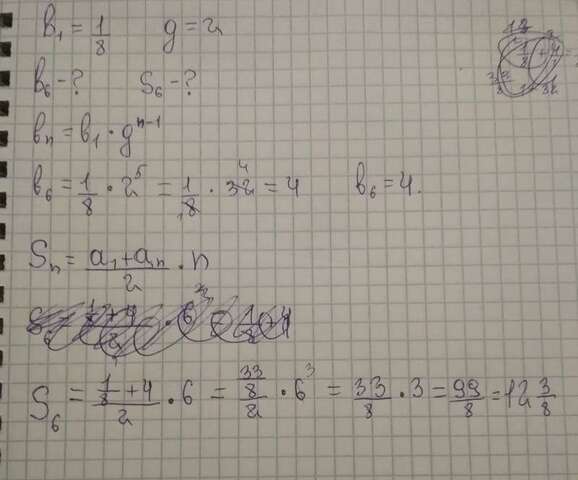 b₁ = 1/8 g = 2
b₆ - ? S₆ - ?
bₙ = b₁ · gⁿ⁻¹
b₆ = 1/8 · 2⁵ = 1/8 · 32 = 4 b₆ = 4.
Sₙ = (a₁ + aₙ)/2 · n
S₆ = (1/8 + 4)/2 · 6 = (33/8)/2 · 6 = 33/8 · 3 = 99/8 = 12 3/8